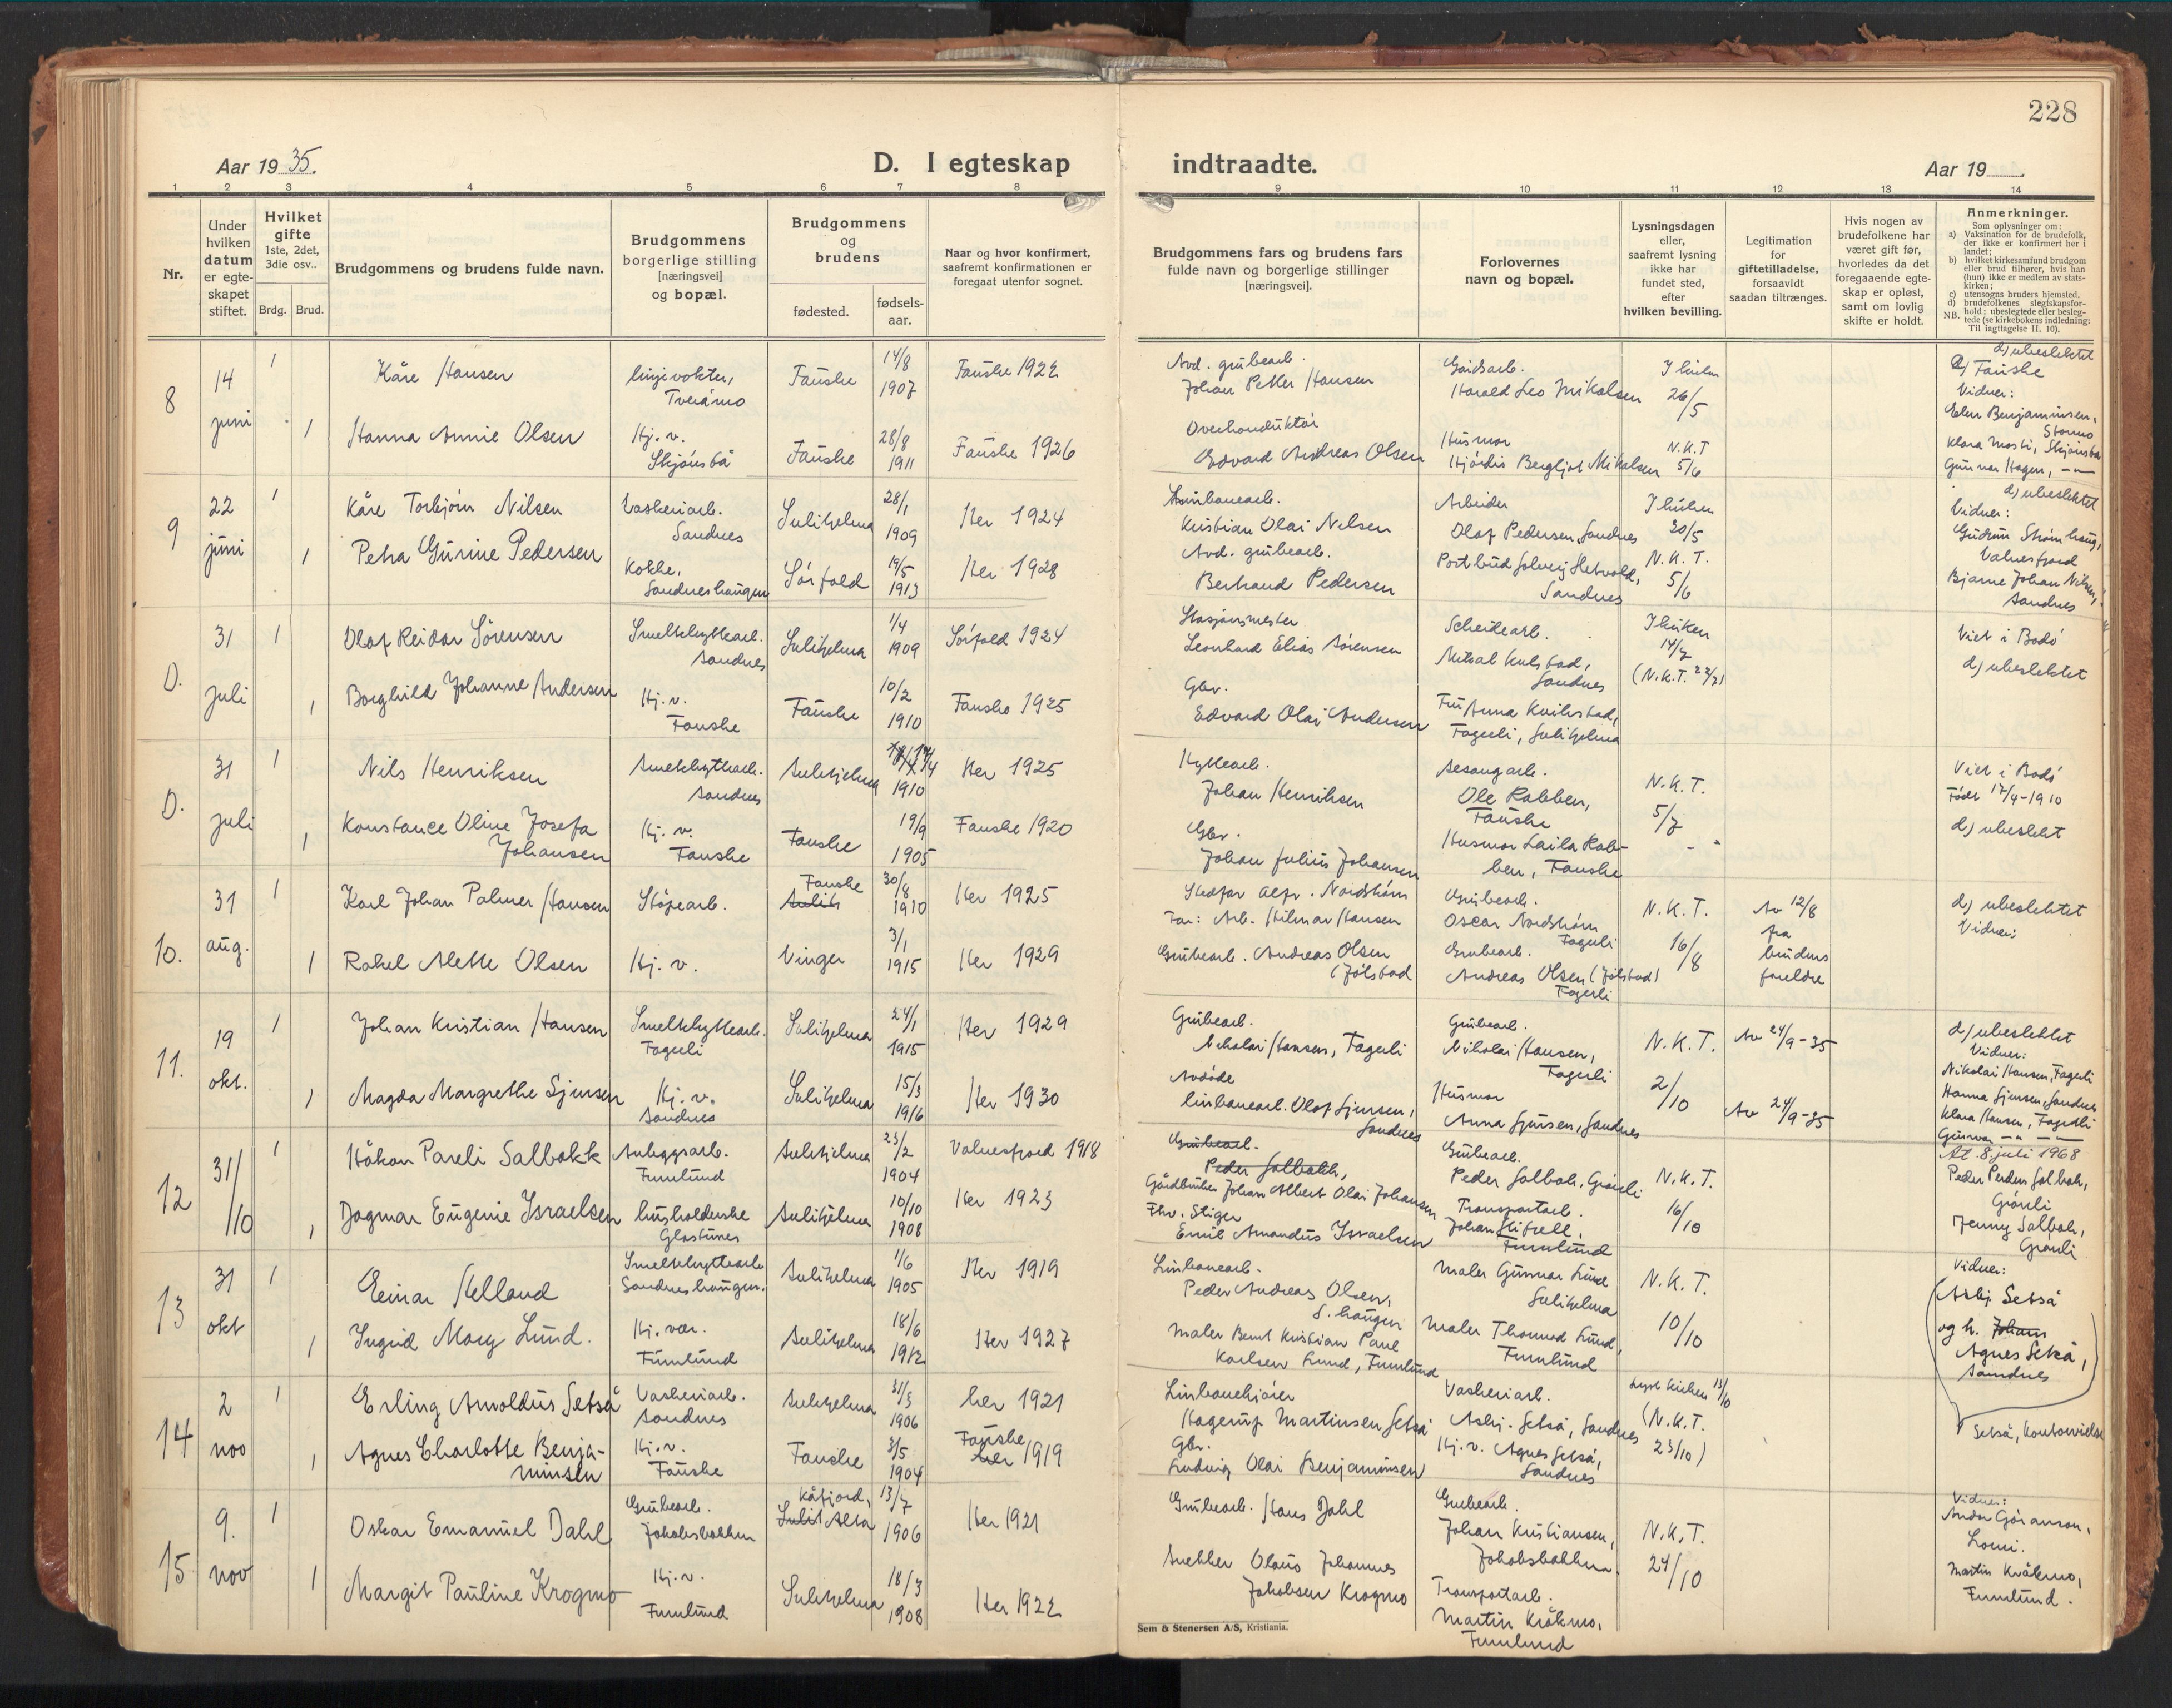 228
Aar 19 35.
D. I egteskap
indtraadte.
Aar 19
1 2 3 4 5 6 7 8 9 10 11 12 13 14
Nr.
Under hvilken datum er egteskapet stiftet.
Hvilket gifte 1ste, 2det, 3die osv..
Brdg. Brud.
Brudgommens og brudens fulde navn.
Brudgommens borgerlige stilling [næringsvei] og bopæl.
Brudgommens og brudens
fødested.
fødselsaar.
Naar og hvor konfirmert, saafremt konfirmationen er foregaat utenfor sognet.
Brudgommens fars og brudens fars fulde navn og borgerlige stillinger [næringsvei].
Forlovernes navn og bopæl.
Lysningsdagen eller, saafremt lysning ikke har fundet sted, efter hvilken bevilling.
Legitimation for giftetilladelse, forsaavidt saadan tiltrænges.
Hvis nogen av brudefolkene har været gift før, hvorledes da det foregaaende egteskap er opløst, samt om lovlig skifte er holdt.
Anmerkninger.
Som oplysninger om:
a) Vaksination for de brudefolk, der ikke er konfirmert her i landet;
b) hvilket kirkesamfund brudgom eller brud tilhører, hvis han (hun) ikke er medlem av statskirken;
c) utensogns bruders hjemsted.
d) brudefolkenes slegtskapsforhold: ubeslegtede eller beslegtede (se kirkebokens indledning: Til iagttagelse II. 10).
NB.
8
14 juni
1
Kåre Hansen
linjevokter, Tveråmo
Fauske
14/8 1907
Fauske 1922
Avd. grubearb. Johan Petter Hansen
Harald Leo Mikalsen
26/5
d) ubeslektet
Fauske
Vidner:
1
Hanna Annie Olsen
Hj. v.
Fauske
28/8 1911
Fauske 1926
Overkonduktør Edvard Andreas Olsen
Husmor Hjørdis Bergljot Mikalsen
N.K.T 5/6
Gunnar Hagen,
9
22 juni
1
Kåre Torbjørn Nilsen
Vaskeriarb. Sandnes
Sulitjelma
28/1 1909
Her 1924
Kristian Olai Nilsen
Arbeider Olaf Pedersen, Sandnes
d) ubeslektet
Vidner:
1
Petra Gurine Pedersen
Kokke, Sandneshaugen
Sørfold
19/5 1913
Her 1928
Avd. grubearb. Bertrand Pedersen
Sandnes
N.K.T. 5/6
Valnesfjord
Bjarne Johan Nilsen, Sandnes
D.
31 juli
1
Olaf Reidar Sørensen
Smeltehyttearb. Sandnes
Sulitjelma
1/4 1909
Sørfold 1924
Stasjonsmester Leonhard Elias Sørensen
Scheidearb.
Sandnes
14/7
Viet i Bodø
d) ubeslektet
1
Borghild Johanne Andersen
Hj. v. Fauske
Fauske
10/2 1910
Fauske 1925
Gbr. Edvard Olai Andersen
Fagerli, Sulitjelma
D.
31 juli
1
Nils Henriksen
Smeltehyttearb. Sandnes
Sulitjelma
1910
Her 1925
Hyttearb. Johan Henriksen
Ole Rabben, Fauske
N.K.T. 5/7
Viet i Bodø
Født 17/4-1910
d) ubeslekt
1
Konstance Oline Josefa Johansen
Hj. v. Fauske
Fauske
19/9 1905
Fauske 1920
Gbr. Johan Julius Johansen
Husmor Laila Rabben, Fauske
10.
31 aug.
1
Karl Johan Palmer Hansen
Støpearb.
Fauske
30/8 1910
Her 1925
Stedfar Alfr. Nordstrøm
Far: Arb. Hilmar Hansen
Grubearb. Oscar Nordstrøm Fagerli
N.K.T. 16/8
Av 12/8 fra brudens foreldre
d) ubeslektet
Vidner:
1
Rakel Alette Olsen
Hj. v.
Vinger
3/1 1915
Her 1929
Grubearb. Andreas Olsen (Jølstad
Grubearb. Andreas Olsen (Jølstad) Fagerli
11.
19 okt.
1
Johan Kristian Hansen
Smeltehyttearb. Fagerli
Sulitjelma
24/1 1915
Her 1929
Grubearb. Nikolai Hansen, Fagerli
Grubearb. Nikolai Hansen, Fagerli
N.K.T. 2/10
Av 24/9-35
d) ubeslektet
Vidner:
Nikolai Hansen, Fagerli
1
Magda Margrethe Sjursen
Hj. v. Sandnes
Sulitjelma
15/3 1916
Her 1930
Avdøde linbanearb. Olaf Sjursen, Sandnes
Husmor Anna Sjursen, Sandnes
Av 24/9-35
Hanna Sjursen, Sandnes
Klara Hansen, Fagerli
12
31/10
1
Håkon Pareli Salbakk
Anleggsarb. Furulund
Sulitjelma
23/2 1904
Valnesfjord 1918
Grubearb. Peder Salbakk,
Gårdbruker Johan Albert Olai Johansen
Grubearb. Peder Salbakk,
N.K.T. 16/10
At. 8. juli 1968
1
Dagmar Eugenie Israelsen
husholderske Glastunes
Sulitjelma
10/10 1908
Her 1923
Fhv. Stiger Emil Amandus Israelsen
Transportarb.
Furulund
Jenny Salbakk,
13
31 okt
1
Einar Helland
Smeltehyttearb. Sandneshaugen.
Sulitjelma
1/6 1905
Her 1919
Linbanearb. Peder Andreas Olsen, S.haugen
Maler Gunnar Lund Sulitjelma
N.K.T. 10/10
Vidner:
1
Ingrid Mary Lund.
Hj. vær. Furulund
Sulitjelma
18/6 1912
Her 1927
Maler Bernt Kristian Paul Karlsen Lund, Furulund
Maler Thomas Lund, Furulund
Asbj Setså
og h. Johan
Agnes Setså, Sandnes
14
2 nov
1
Erling Arnoldus Setså
Vaskeriarb. Sandnes
Sulitjelma
1906
her 1921
Hagerup Martinsen Setså
Vaskeriarb. Asbj. Setså, Sandnes
(N.K.T. 23/10)
1
Agnes Charlotte Benjaminsen
Hj. v. Fauske
Fauske
3/5 1904
Fauske her 1919
Gbr. Ludvig Olai Benjaminsen
Hj. v. Agnes Setså, Sandnes
15
9. nov
1
Oskar Emanuel Dahl
Grubearb. Jakobsbakken
Kåfjord, Alta
13/7 1906
Her 1921
Grubearb. Hans Dahl
Grubearb. Johan Kristiansen, Jakobsbakken.
N.K.T. 24/10
Vidner:
Lomi.
1
Margit Pauline Krogmo
Hj. v. Furulund
Sulitjelma
18/3 1908
Her 1922
Snekker Olaus Johannes Jakobsen Krogmo
Transportarb. Martin Kråkmo, Furulund
Martin Kråkmo, Furulund.
Sem & Stenersen A/S, Kristiania.